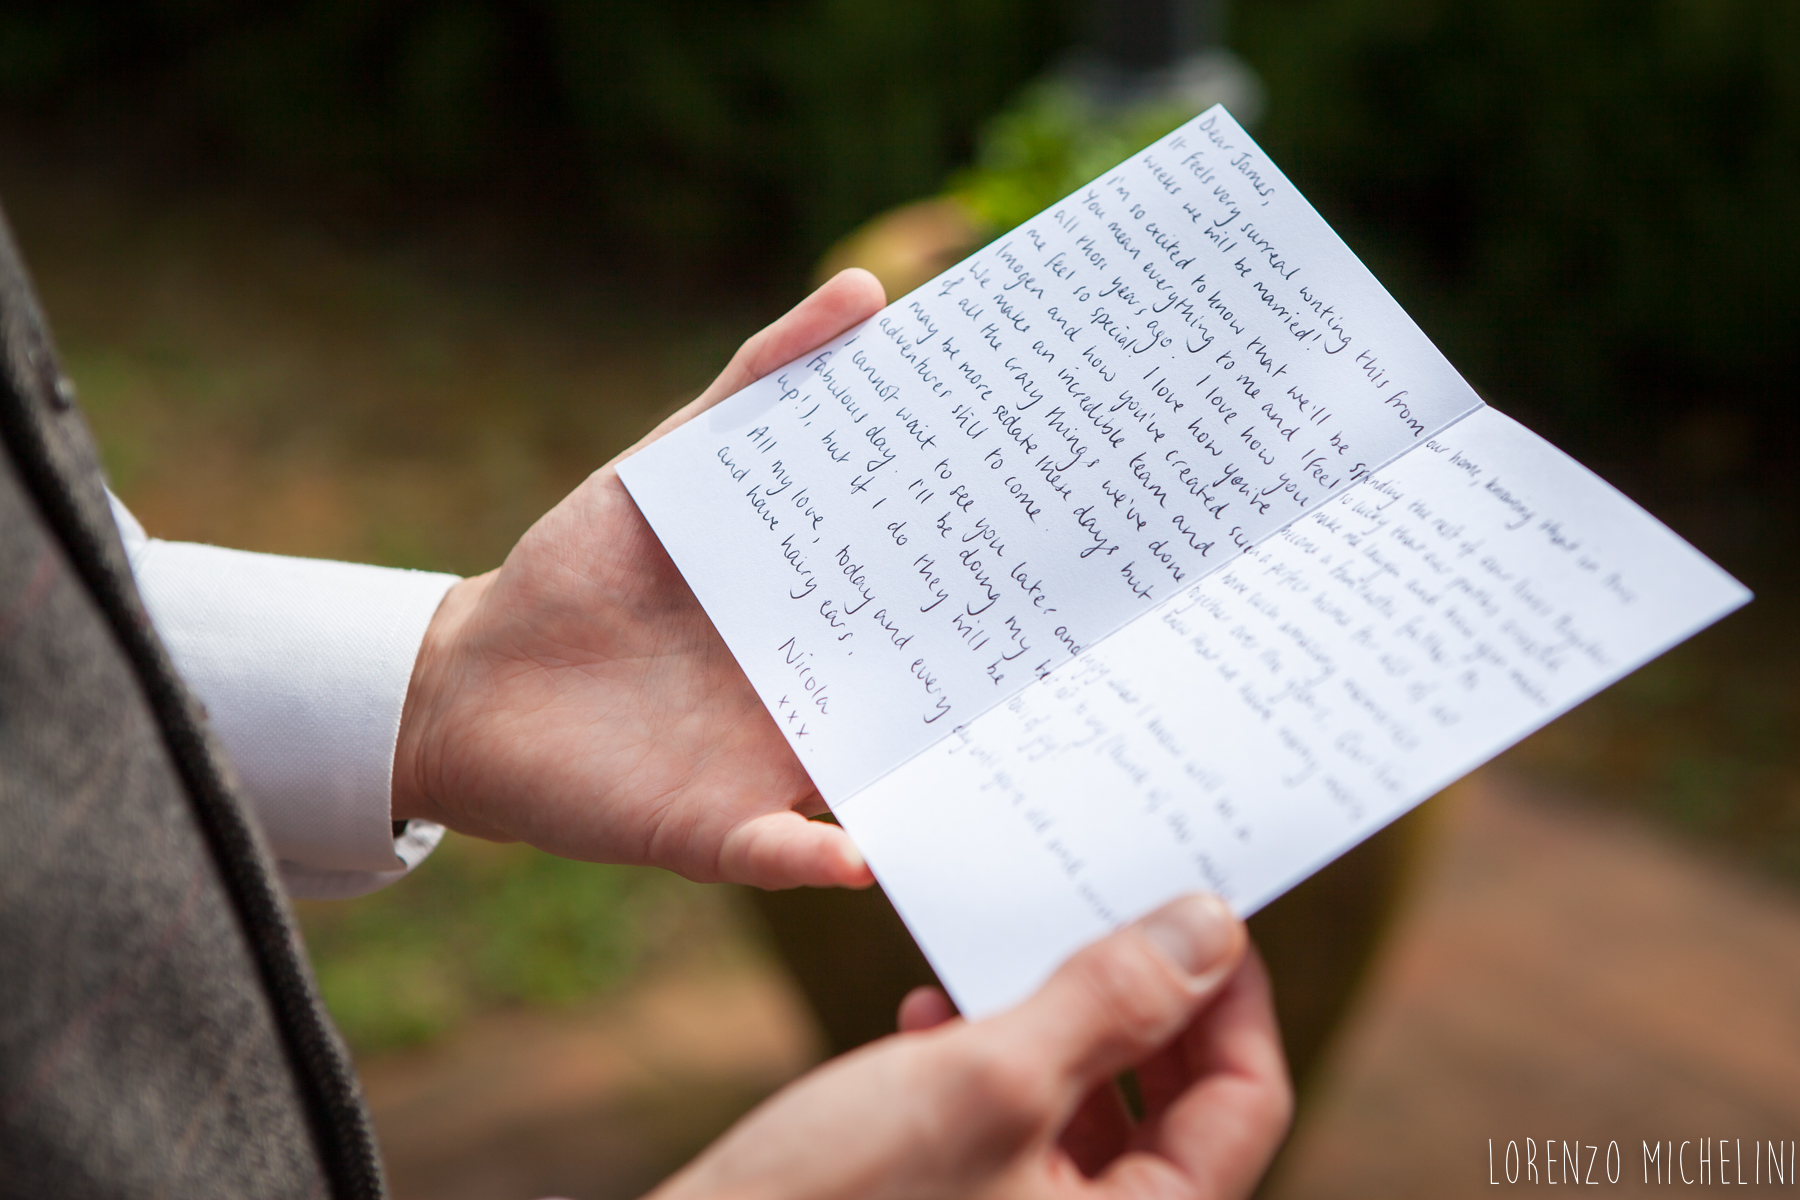 Dear James,
It feels very surreal writing this from our home, knowing that in two
weeks we will be married!
I'm so excited to know that we'll be spending the rest of our lives together.
You mean everything to me and I feel so lucky that our paths crossed
all those years ago. I love how you make me laugh and how you make
me feel so special! I love how you've become a fantastic father to
Imogen and how you've created such a perfect home for all of us.
We make an incredible team and have such amazing memories
of all the crazy things we've done together over the years. Our life
may be more sedate these days but I know that we have many more
adventures still to come.
I cannot wait to see you later and enjoy what I know will be a
fabulous day. I'll be doing my best not to cry (
up!), but if I do they will be tears of joy!
All my love, today and every day until you're old and
and have hairy ears,
Nicola
xxx.
LORENZO MICHELINI